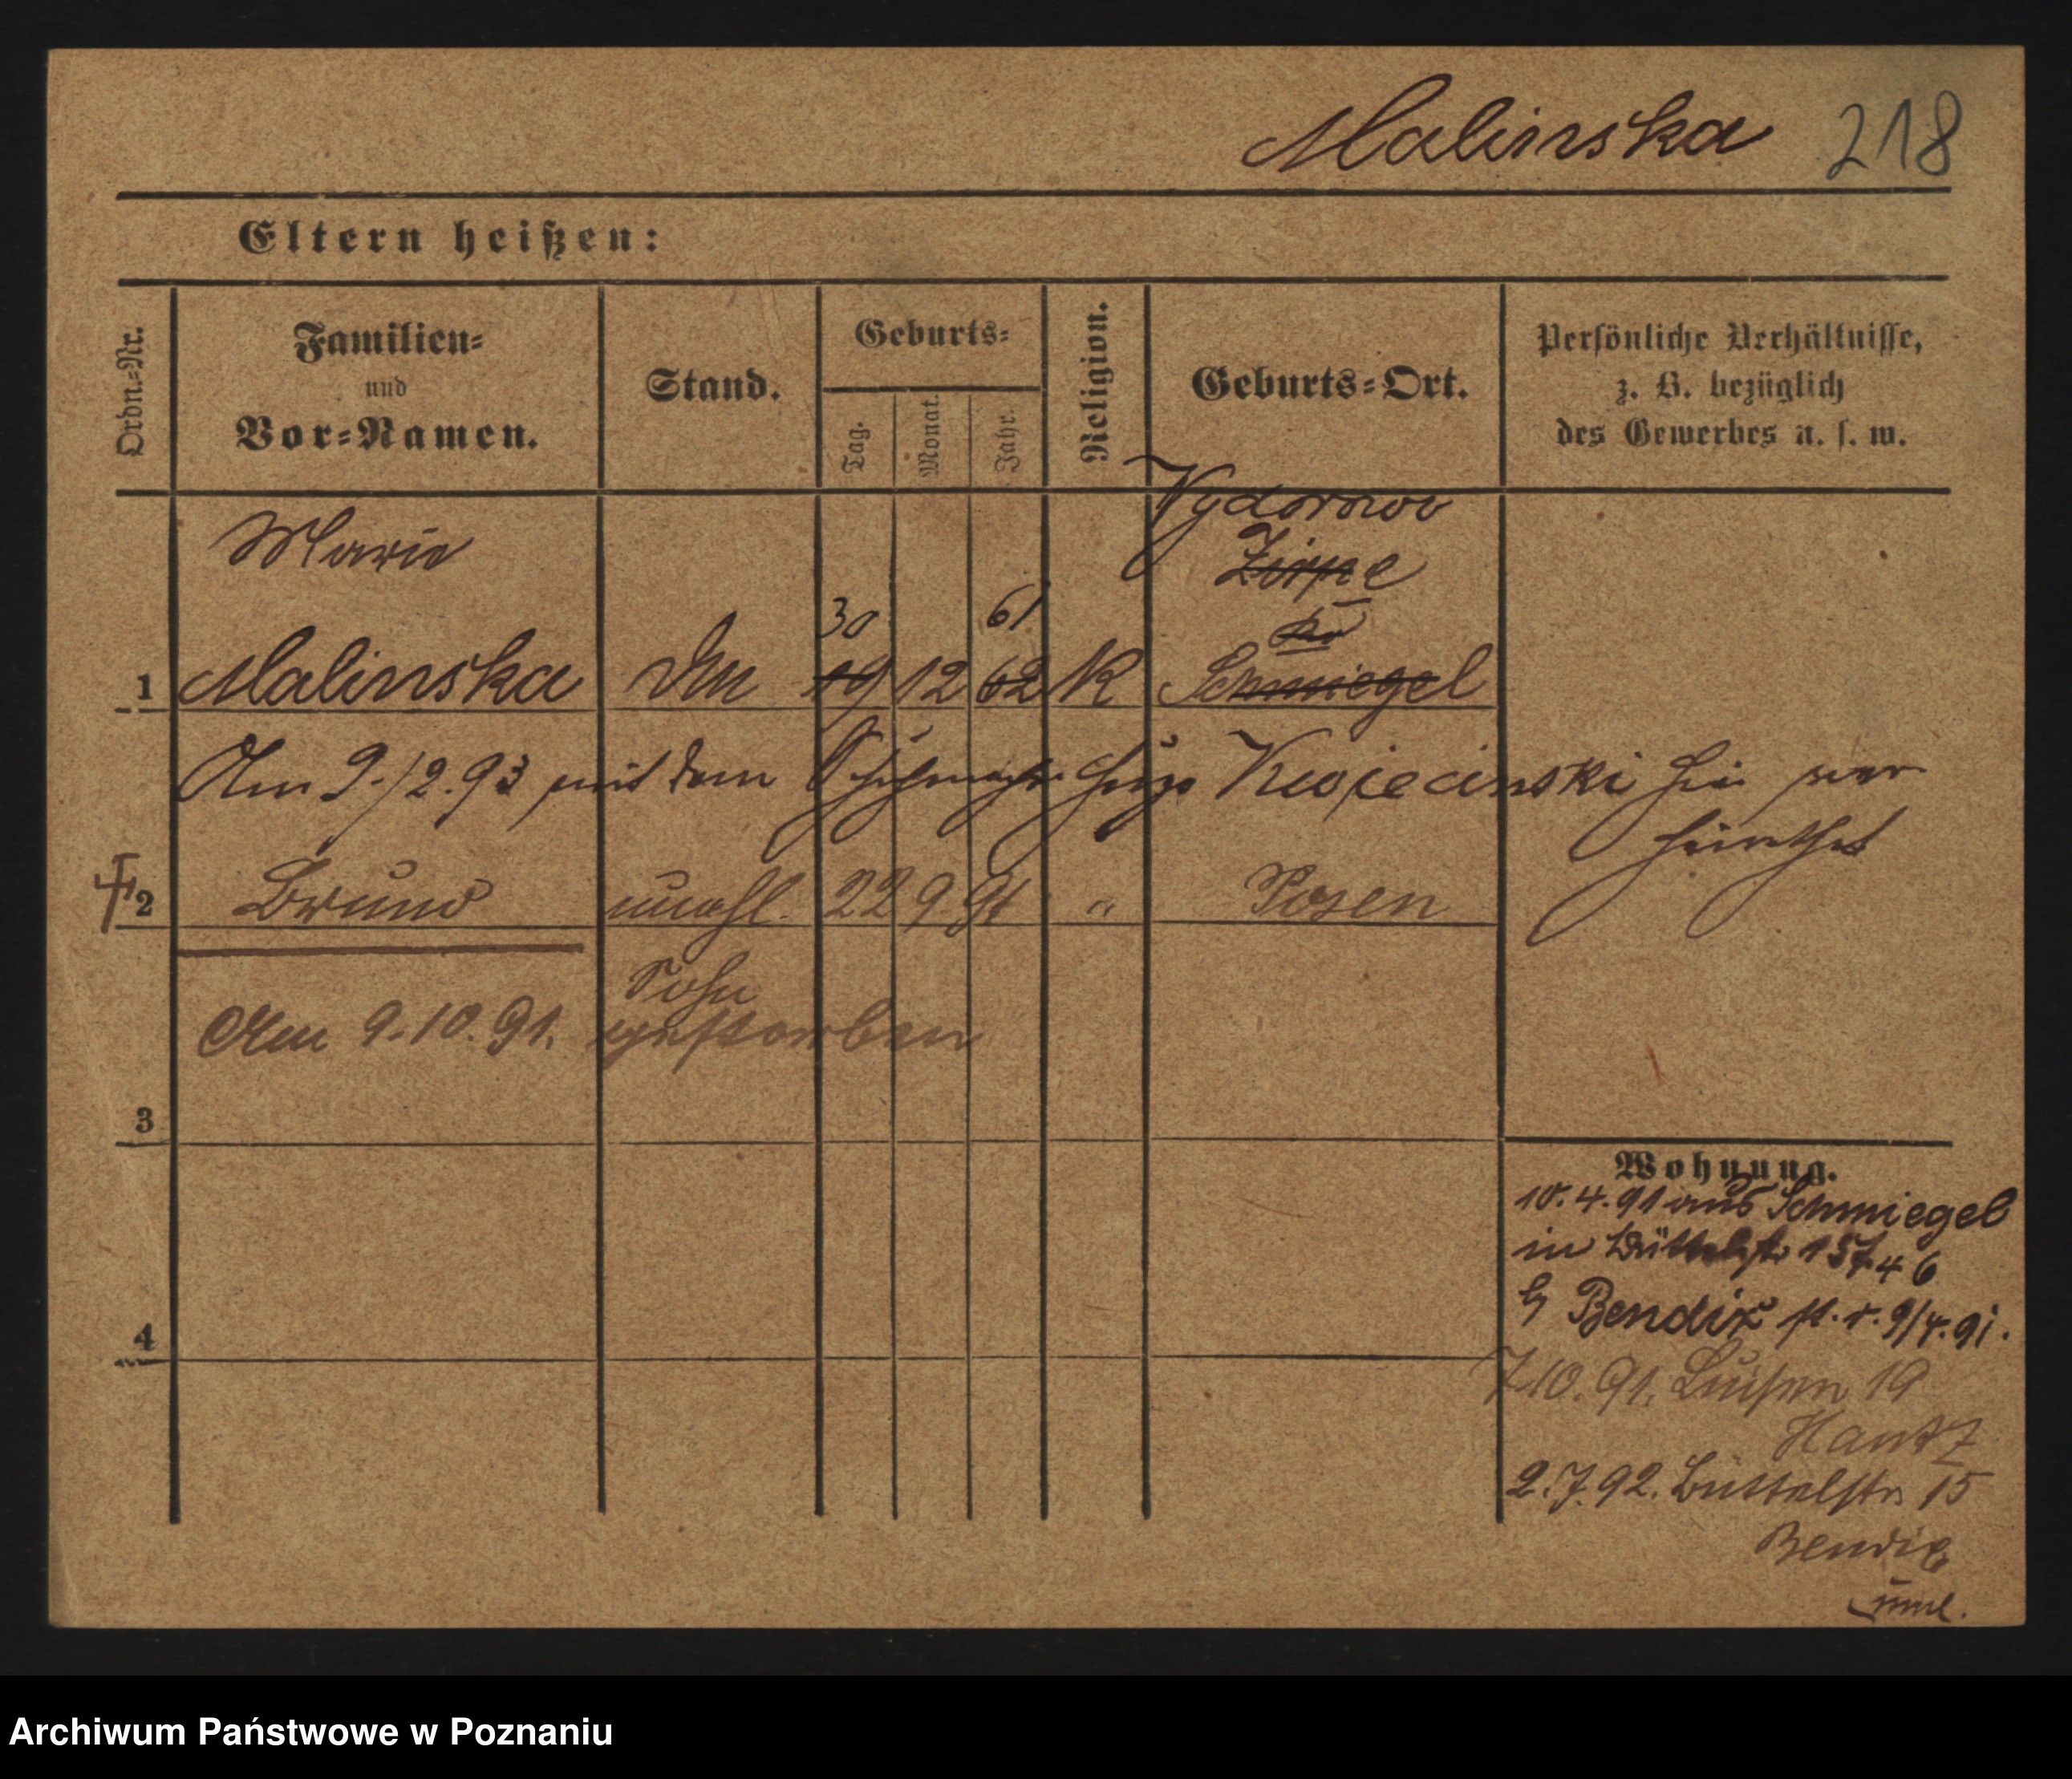 Malinska 218
Eltern heißen:
Ordn.-Nr.
Familien-
und
Vor-Namen.
Stand.
Geburts-
Tag.
Monat.
Jahr.
Religion.
Geburts-Ort.
Persönliche Verhältnisse,
z. B. bezüglich
des Gewerbes u. s. w.
Marie
Wydorowo
Zirpe
30 61
1 Malinska 19 12 62 K Schmiegel
Am 9./2.93 mit dem Schuhmacher Hugo Kwiecinski hier ver
heirathet
2 Bruno unehl. 22 9 91 " Posen
Sohn
Am 9.10.91. gestorben
3
4
Wohnung.
10.4.91 aus Schmiegel
in Büttelstr 15 7.4 6
b Bendix 9/4.91.
7.10.91. Luisen 19
Hantz
2.7.92. Büttelstr 15
Bendix
Archiwum Państwowe w Poznaniu